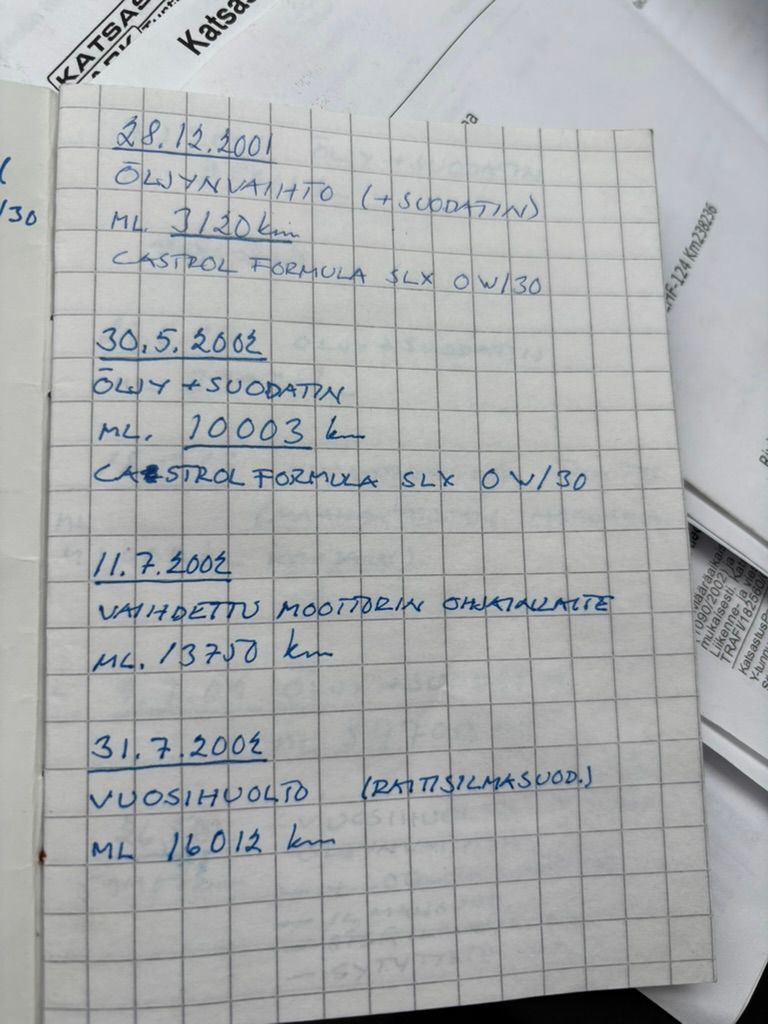 KATSAS
Katsa
28.12.2001
ÖLJYNVAIHTO (+SUODATIN)
ML. 3120 km
CASTROL FORMULA SLX 0W/30
/30
30.5.2002
ÖLJY + SUODATIN
ML. 10003 km
CASTROL FORMULA SLX 0W/30
11.7.2002
VAIHDETTU MOOTTORIN OHJAINLAITE
ML. 13750 km
31.7.2002
VUOSIHUOLTO (RAITISILMASUOD.)
ML 16012 km
-124 Km238236
määräaika
1090/2002) ja
mukaisesti. Kat
Liikenne- ja vie
Katsastus
Y-tunnu